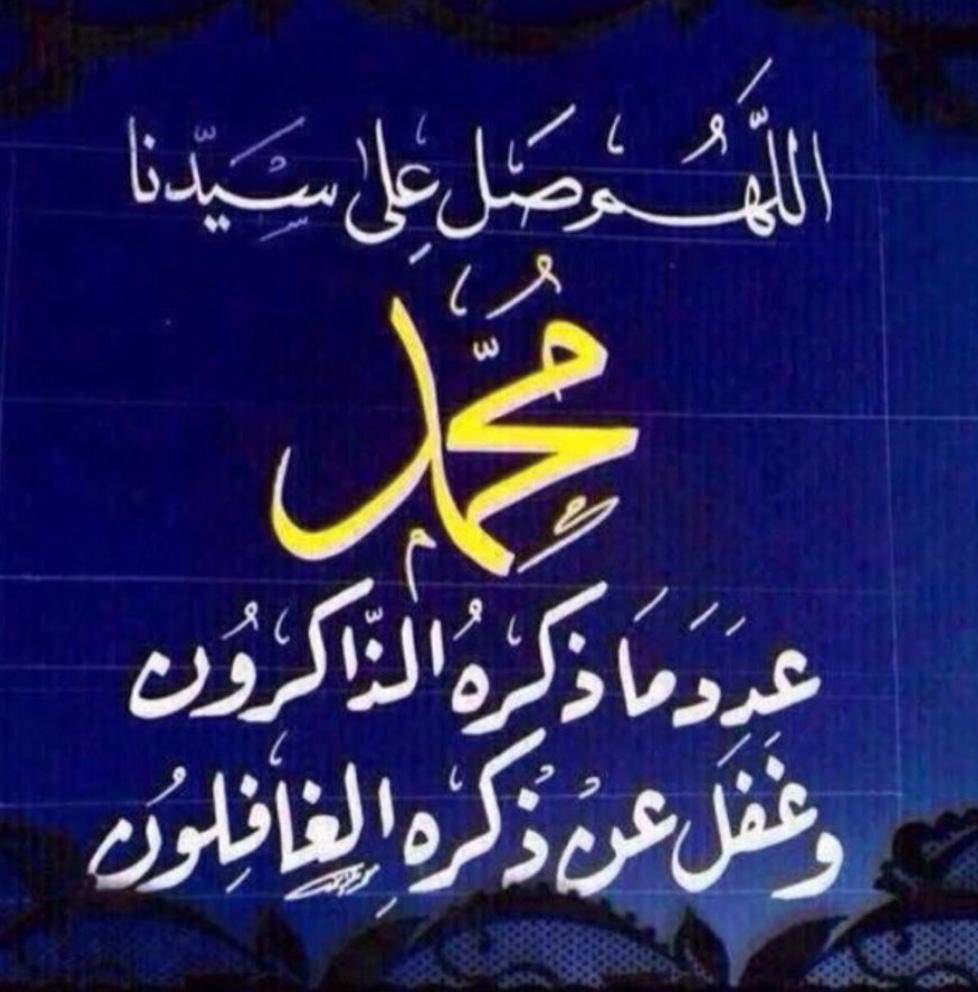 اللَّهُم صَل عَلى سَيِّدنا
مُحَمِّد
عَدَدَ مَا ذكره الذَّاكرُون
وغَفَلَ عنْ ذكره الغافلُون